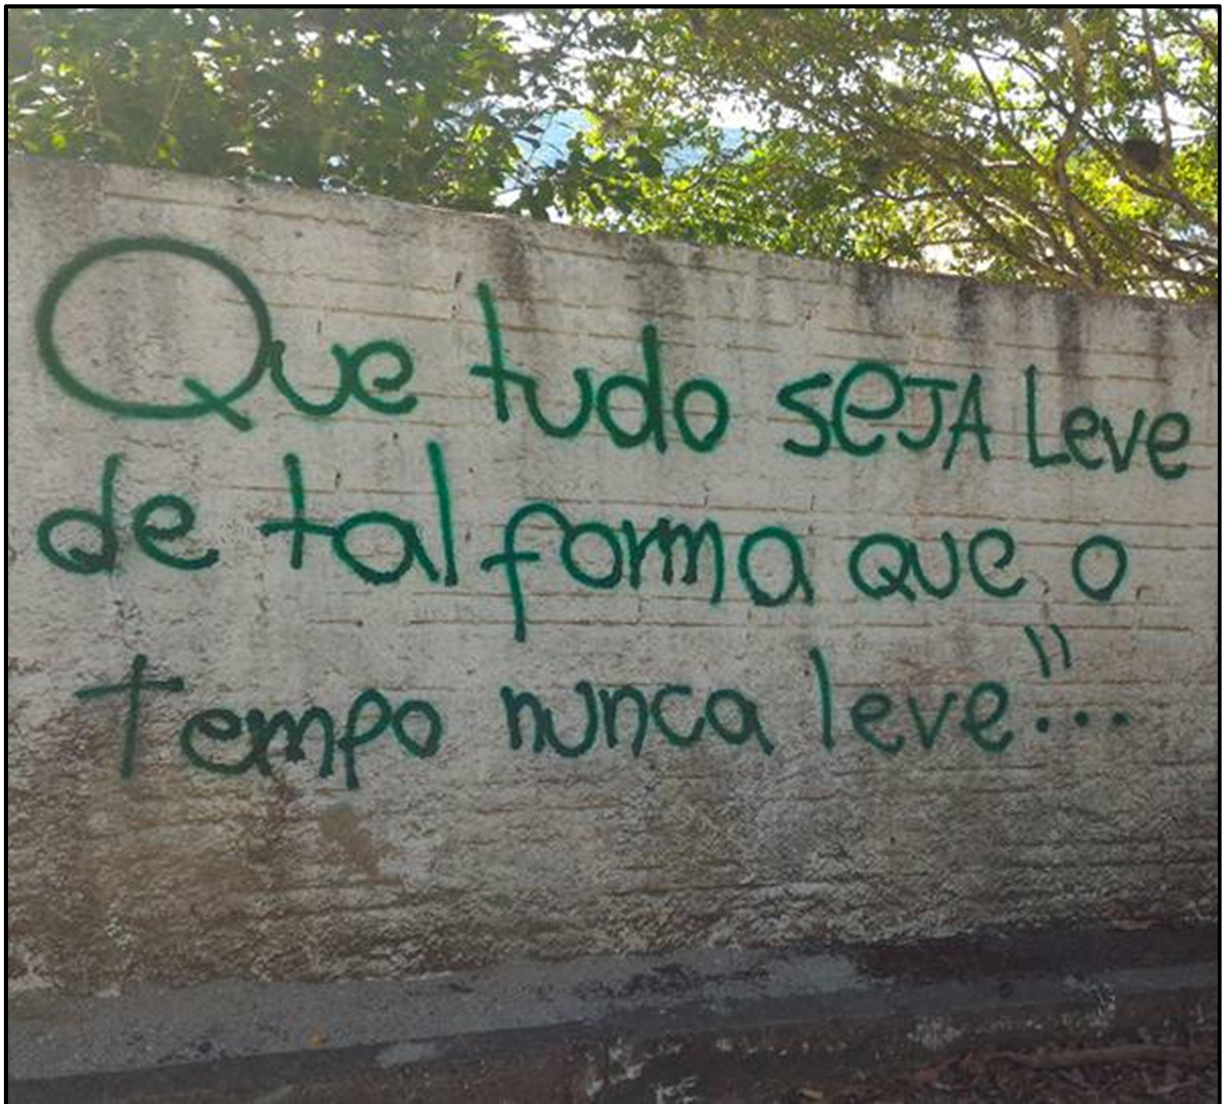 Que tudo seJA Leve
de tal forma que o
tempo nunca leve..."